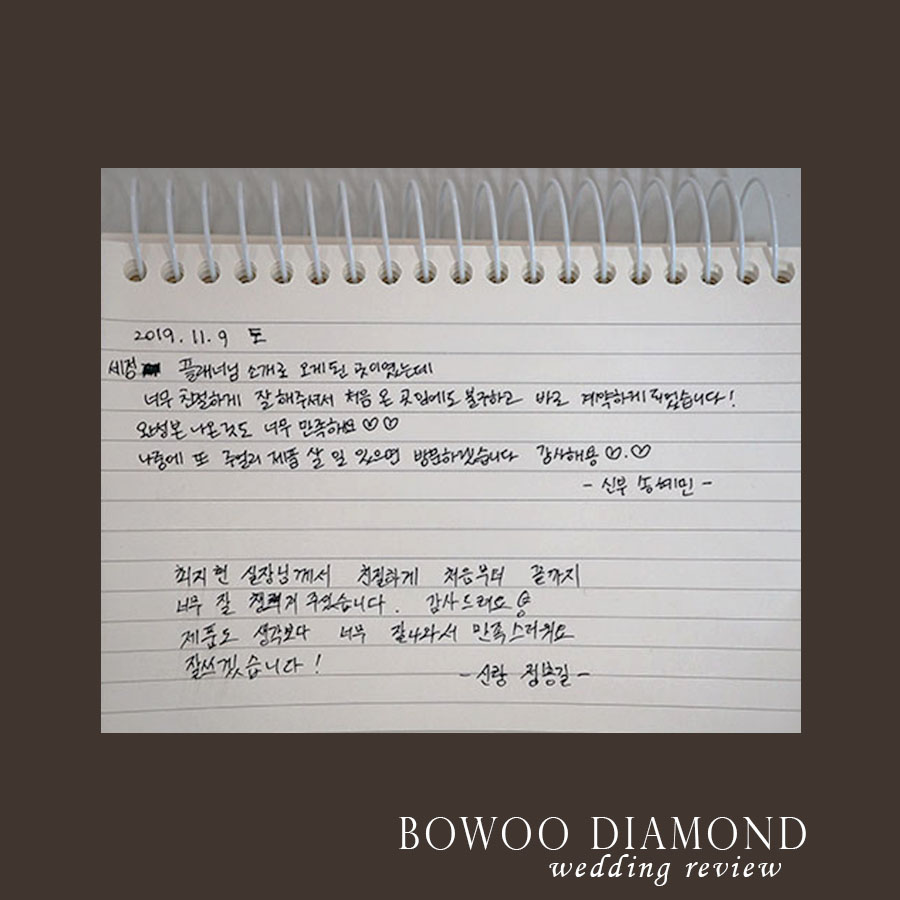 2019. 11. 9 토
세정 플래너님 소개로 오게된 곳이였는데
너무 친절하게 잘해주셔서 처음 온 곳임에도 불구하고 바로 계약하게 되었습니다!
완성본 나온것도 너무 만족해요♡♡
나중에 또 주얼리 제품 살 일 있으면 방문하겠습니다 감사해용 ♡.♡
- 신부 송혜민 -
최지현 실장님께서 친절하게 처음부터 끝까지
너무 잘 챙겨 주셨습니다. 감사드려요
제품도 생각보다 너무 잘나와서 만족스러워요
잘쓰겠습니다!
- 신랑 -
BOWOO DIAMOND
wedding review